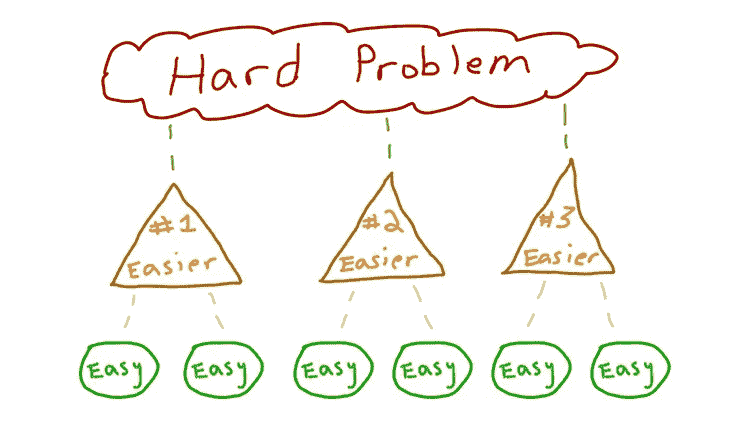 Hard Problem
#1
Easier
#2
Easier
#3
Easier
Easy
Easy
Easy
Easy
Easy
Easy